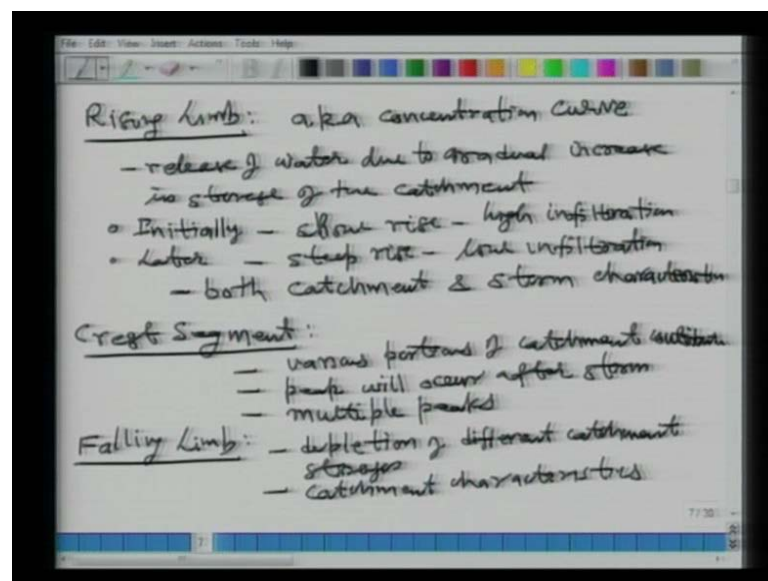 File Edit View Insert Actions Tools Help
Rising Limb: a.k.a concentration curve
- release of water due to gradual increase
in storage of the catchment
• Initially - slow rise - high infiltration
• Later - steep rise - low infiltration
- both catchment & storm characteristics
Crest Segment:
- various portions of catchment contribute
- peak will occur after storm
- multiple peaks
Falling Limb: - depletion of different catchment
storages
- catchment characteristics
7/30
7